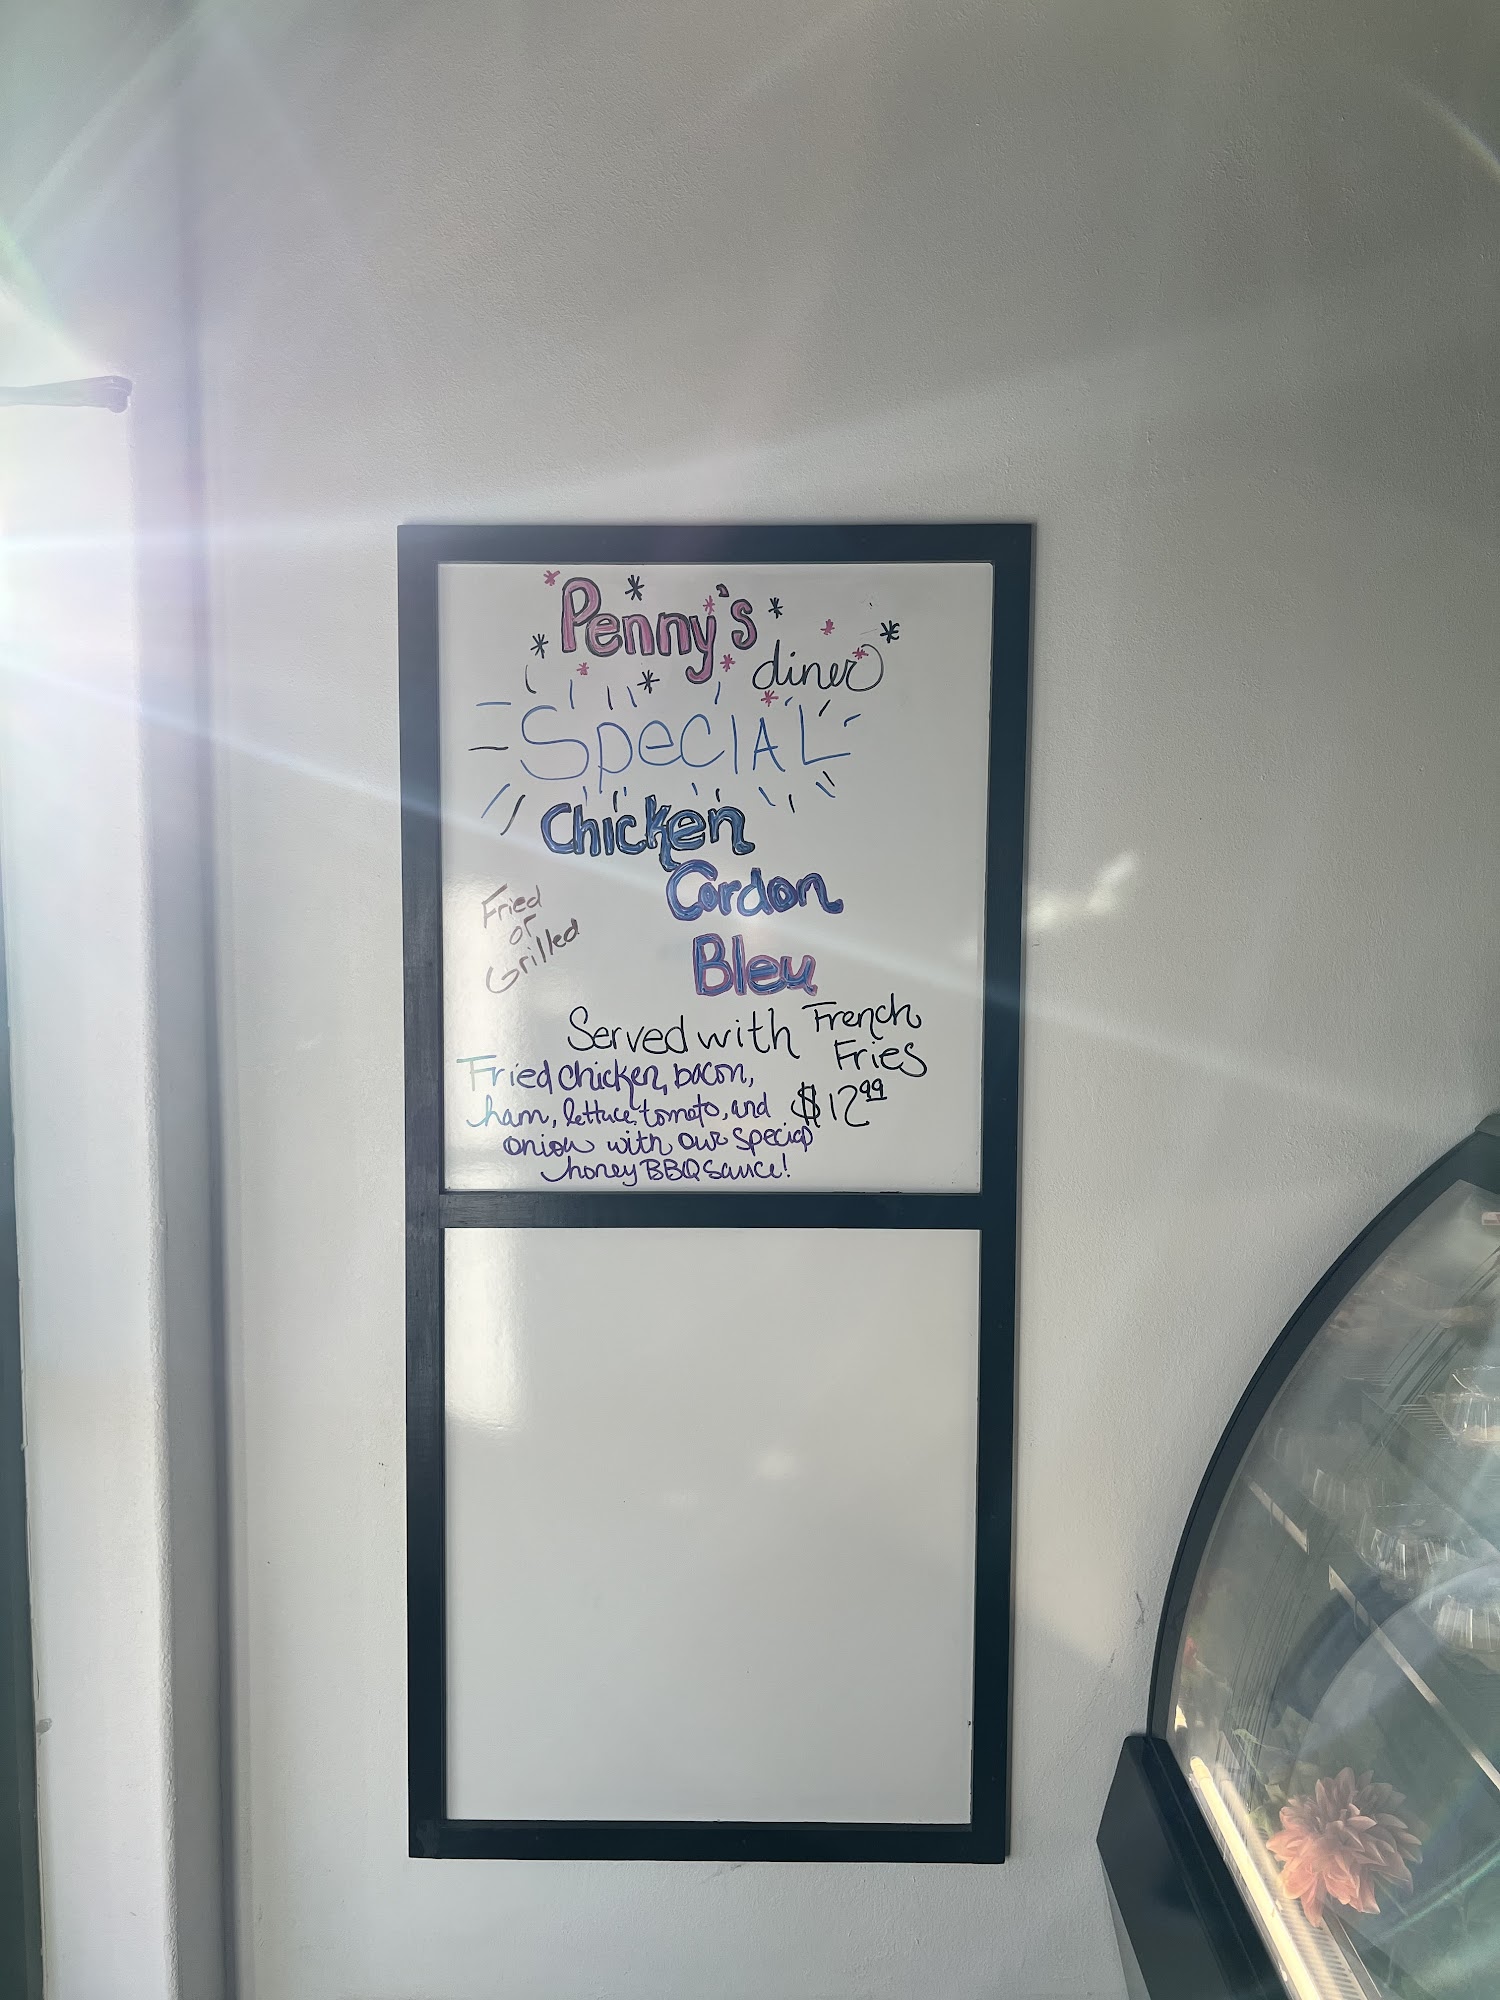 Penny's
diner
SpecIAL
Chicken
Cordon
Bleu
Fried
or
Grilled
Served with French
Fries
$12.99
Fried chicken, bacon,
ham, lettuce, tomato, and
onion with our special
honey BBQ sauce!